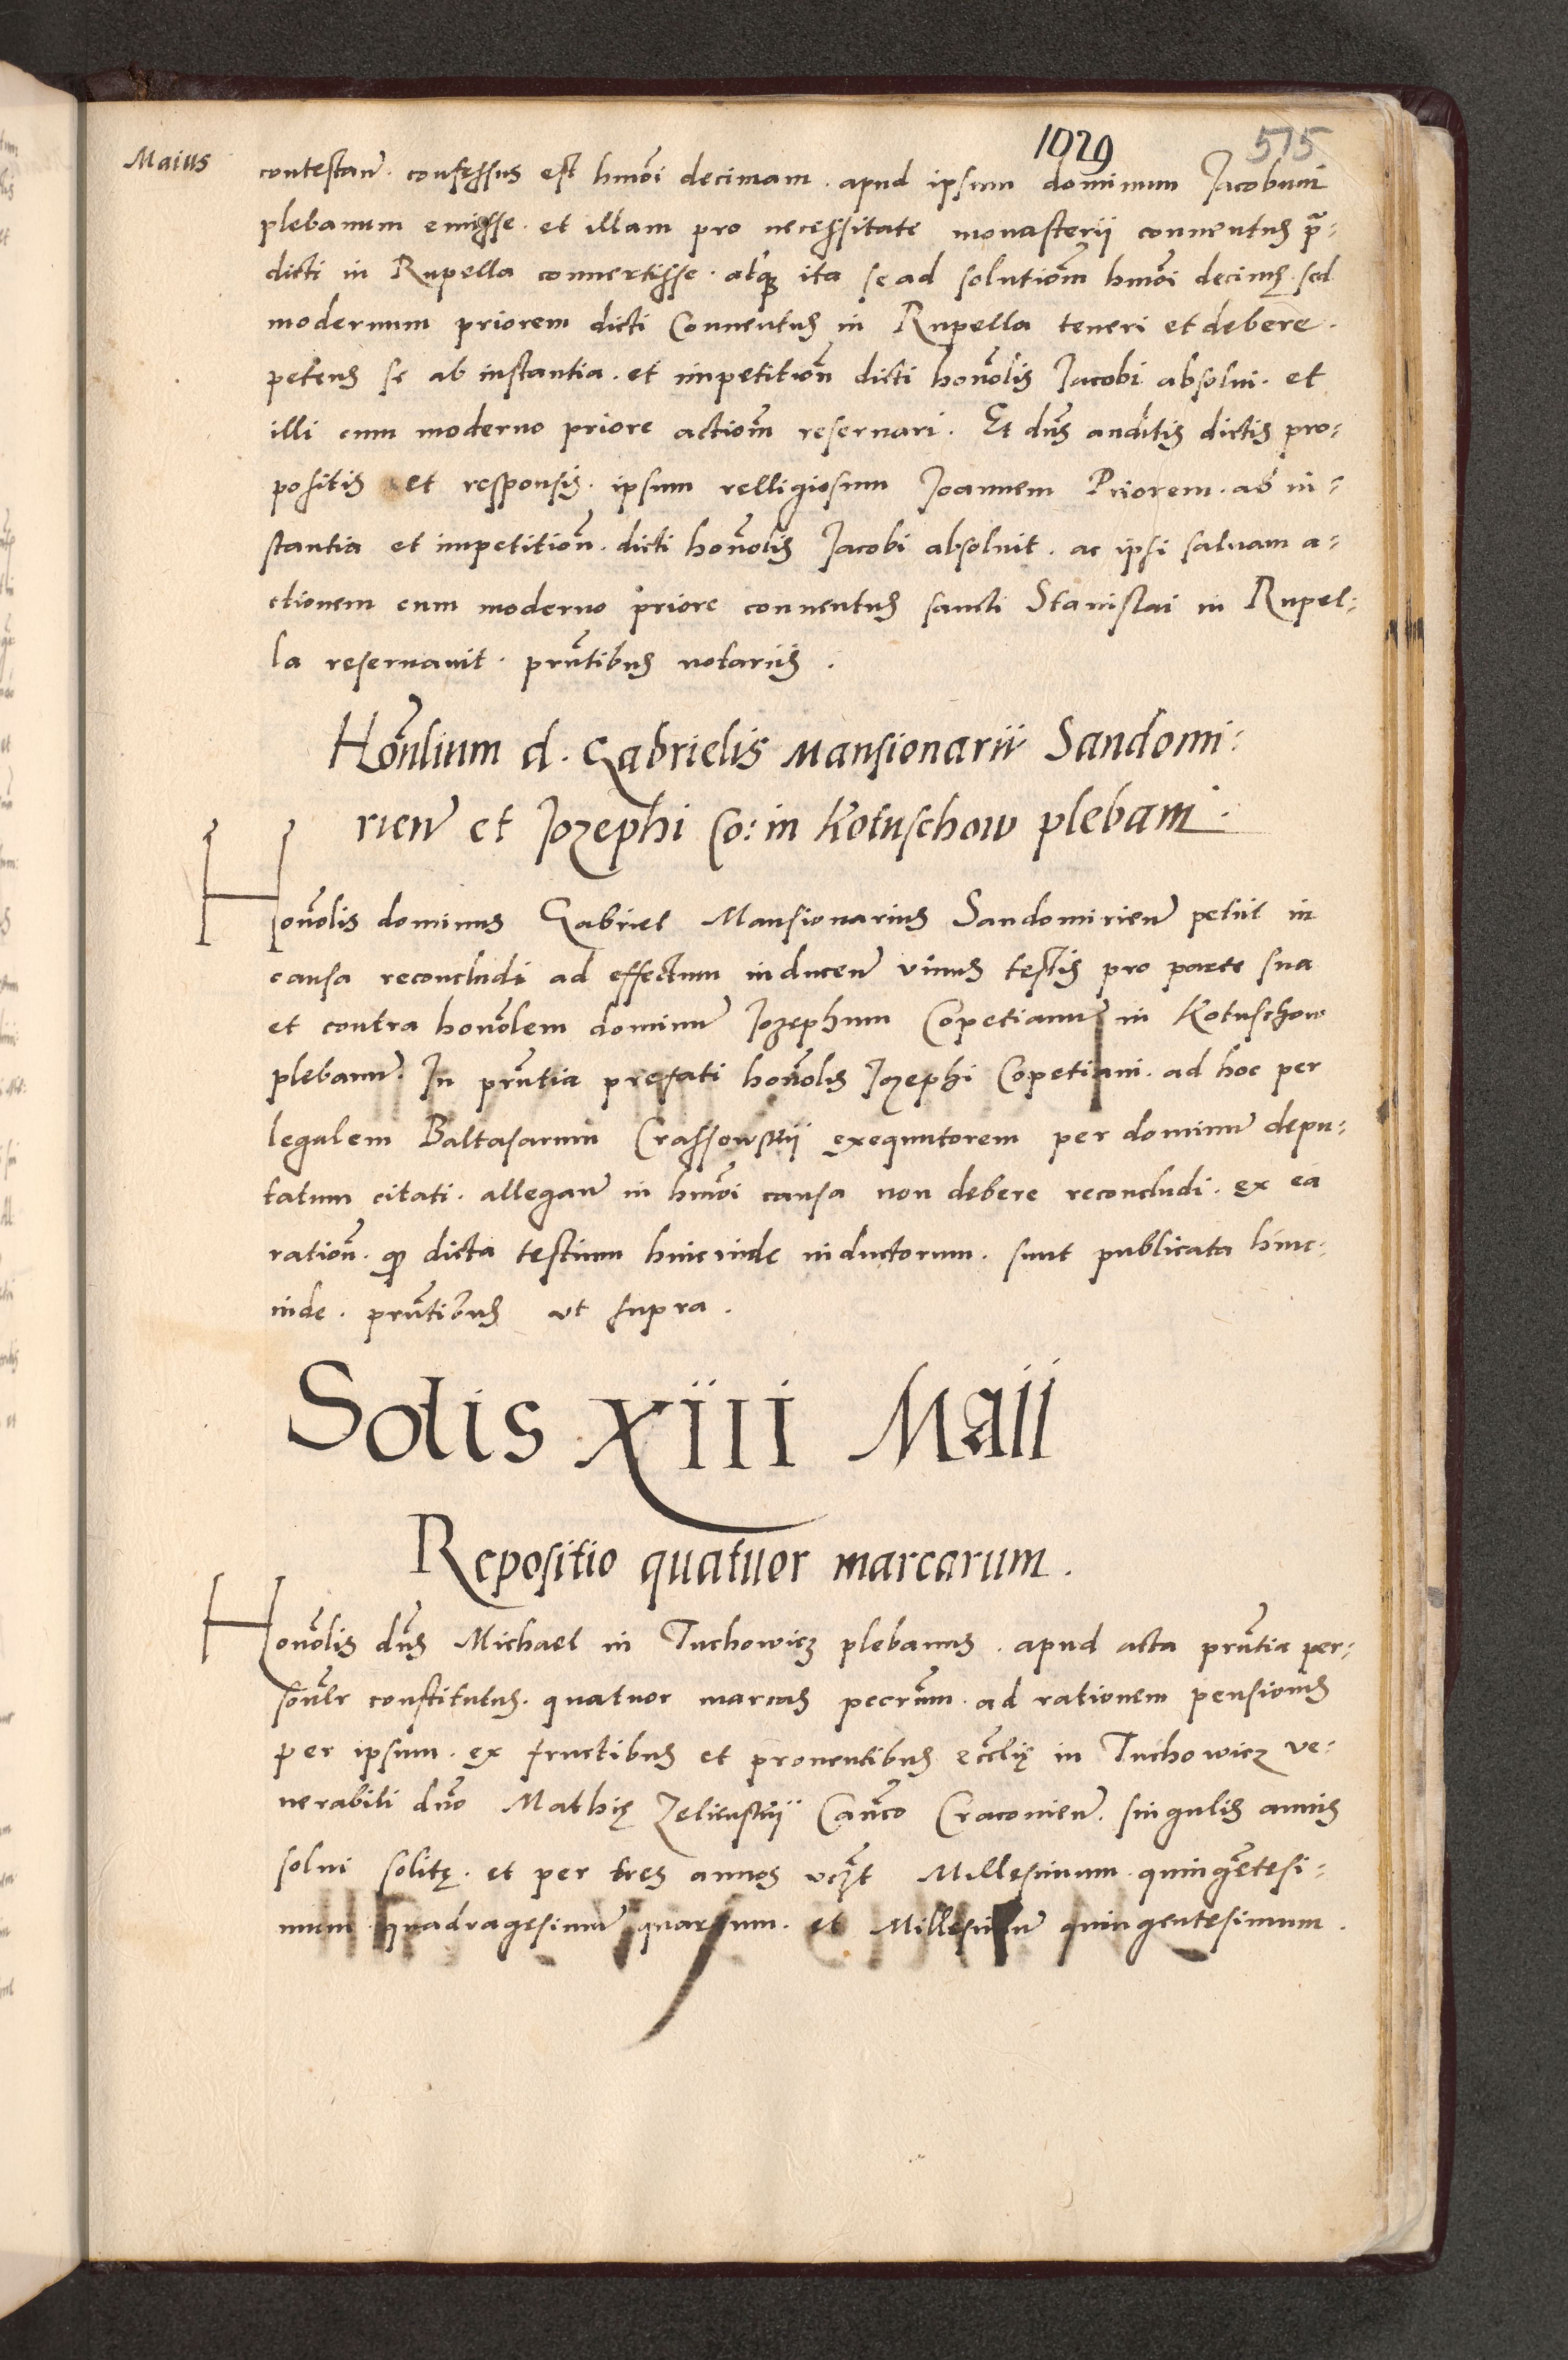 1029 515
Maius
contestan̄. confessus est hmōi decimam. apud ipsum dominum Jacobum
plebanum emisse. et illam pro necessitate monasterii conuentus prę=
dicti in Rupella conuertisse. atq̨ ita se ad solutiōm hmōi decimę. sed
modernum priorem dicti Conuentus in Rupella teneri et debere.
petens se ab instantia. et impetitiōn dicti honōlis Jacobi absolui. et
illi cum moderno priore actiōm reseruari. Et dn̄s auditis dictis pro=
positis et responsis. ipsum relligiosum Joannem Priorem. ab in=
stantia et impetitiōn. dicti honōlis Jacobi absoluit. ac ipsi saluam a=
ctionem cum moderno priore conuentus sancti Stanislai in Rupel=
la reseruauit. prn̄tibus notariis.
Honōlium d. Gabrielis Mansionarii Sandomi=
rien̄ et Jozephi Co: in Kotuschow plebani.
Honōlis dominus Gabriel Mansionarius Sandomirien̄ petiit in
causa reconcludi ad effectum inducen̄ vnius testis pro parte sua
et contra honōlem dominū Jozephum Copetianū in Kotuschow
plebanū. In prn̄tia prefati honōlis Jozephi Copetiani. ad hoc per
legalem Baltasarum Crassowskii exequutorem per dominū depu=
tatum citati. allegan̄ in hmōi causa non debere reconcludi. ex ea
ratiōn. q̨ dicta testium hincinde inductorum. sunt publicata hinc=
inde. prn̄tibus vt supra.
Solis XIII Maii
Repositio quatuor marcarum.
Honōlis dn̄s Michael in Tuchowicz plebanus. apud acta prn̄tia per=
sonlr̄ constitutus. quatuor marcas pecrūm. ad rationem pensionis
per ipsum. ex fructibus et prouentibus eccl̄ię in Tuchowicz ve=
nerabili dn̄o Mathię Zelienskii Can̄co Cracouien̄. singulis annis
solui solitę. et per tres annos vcz̄t Millesimum quingētesi=
mum quadragesimū quartum. et Millesimū quingentesimum.